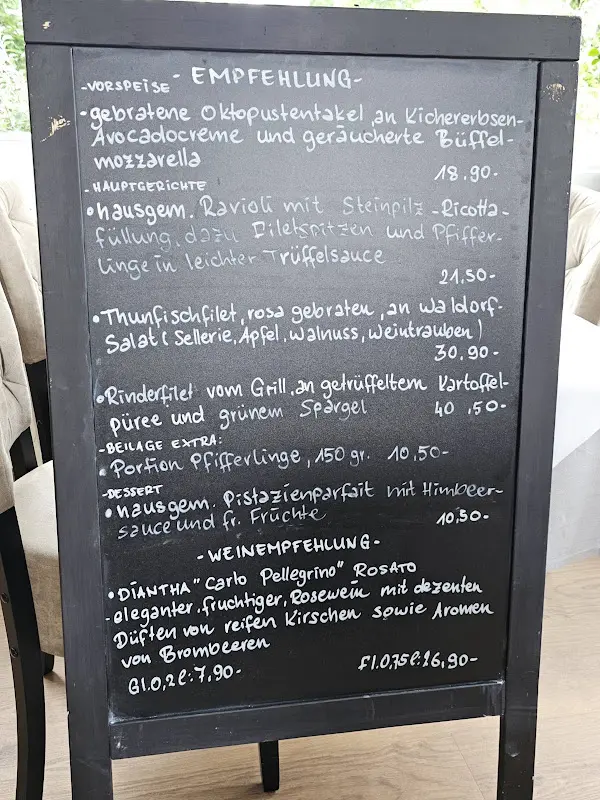 - EMPFEHLUNG-
-VORSPEISE
-gebratene Oktopustentakel,an Kichererbsen-
Avocadocreme und geräucherte Büffel-
mozzarella
18.90-
- HAUPTGERICHTE
•hausgem. Ravioli mit Steinpilz-Ricotta-
füllung, dazu Filetspitzen und Pfiffer-
linge in leichter Trüffelsauce
21,50-
•Thunfischfilet, rosa gebraten, an Waldorf-
Salat (Sellerie, Apfel, Walnuss, Weintrauben)
30.90-
•Rinderfilet vom Grill, an getrüffeltem Kartoffel-
püree und grünem Spargel 40,50-
-BEILAGE EXTRA:
•Portion Pfifferlinge, 150 gr. 10,50-
-DESSERT
•hausgem. Pistazienparfait mit Himbeer-
sauce und fr. Früchte 10,50-
-WEINEMPFEHLUNG-
•DIANTHA "Carlo Pellegrino" ROSATO
-eleganter, fruchtiger, Rosewein mit dezenten
Düften von reifen Kirschen sowie Aromen
von Brombeeren
Gl.0,2l:7,90- Fl.0,75l:26,90-